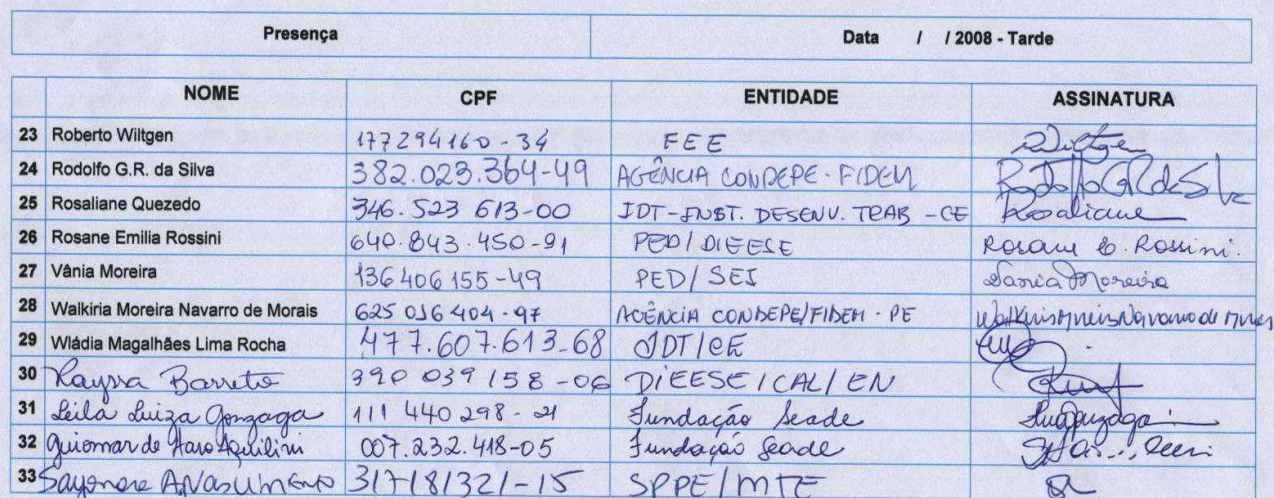 Presença Data / / 2008 - Tarde
NOME CPF ENTIDADE ASSINATURA
23 Roberto Wiltgen 177294160-34 FEE
24 Rodolfo G.R. da Silva 382.023.364-49 AGÊNCIA CONDEPE-FIDEM Rodolfo GR da Silva
25 Rosaliane Quezedo 346.523 613-00 IDT-INST. DESENV. TRAB -CE Rosaliane
26 Rosane Emilia Rossini 640.843.450-91 PED/DIEESE Rosane E. Rossini.
27 Vânia Moreira 136406155-49 PED/SEI Vania Moreira
28 Walkiria Moreira Navarro de Morais 625 016 404-97 AGÊNCIA CONDEPE/FIDEM - PE
29 Wládia Magalhães Lima Rocha 477.607.613-68 IDT/CE
30 Rayssa Barreto 390 039 158-06 DIEESE/CAL/EN
31 Leila Luiza Gonzaga 111 440 298-21 Fundação Seade
32 Guiomar de Haro Aquilini 007.232.418-05 Fundação Seade
33 317181321-15 SPPE/MTE